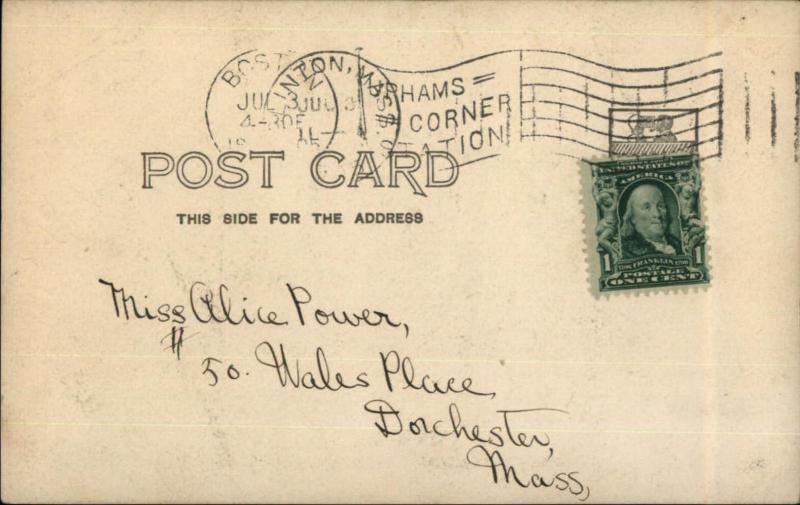 BOSTON
CLINTON, MASS.
JUL 3
4-30P
UPHAMS
CORNER
STATION
POST CARD
THIS SIDE FOR THE ADDRESS
UNITED STATES OF
AMERICA
1 FRANKLIN 1
POSTAGE
ONE CENT
Miss Alice Power,
# 50. Wales Place,
Dorchester,
Mass,